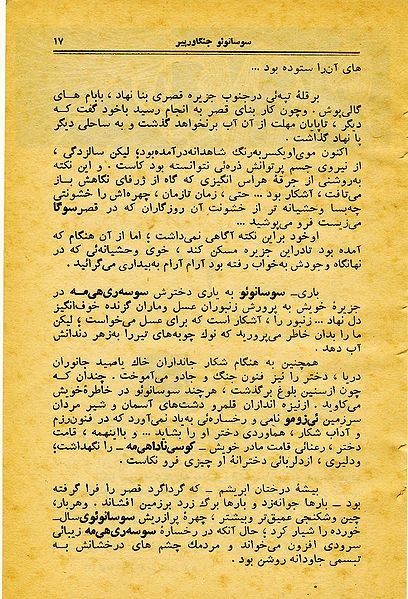 سوسانوئو جنگاورپیر ۱۷
های آن‌را ستوده بود ...
برقلهٔ تپه‌ئی درجنوب جزیره قصری بنا نهاد ، بابام های
گالی‌پوش . وچون کار بنای قصر به انجام رسید باخود گفت که
دیگر ، تاپایان مهلت از آن آب برنخواهد گذشت و به ساحلی دیگر
پا نهاد گذاشت .
اکنون موی‌اویکسر به‌رنگ شاهدانه درآمده‌بود؛ لیکن سالزدگی ،
از نیروی جسم پرتوانش ذره‌ئی نتوانسته بود کاست . و این نکته
به‌روشنی از جرقهٔ هراس انگیزی که گاه از ژرفای نگاهش باز
می‌تافت ، آشکار بود ... حتی ، زمان تازمان ، چهره‌اش را خشونتی
چه‌بسا وحشیانه تر از خشونت آن روزگاران که در قصر سوگا
می‌زیست فرو می‌پوشید ...
اوخود براین نکته آگاهی نمی‌داشت ؛ اما از آن هنگام که
آمده بود تادراین جزیره مسکن کند ، خوی وحشیانه‌ئی که در
نهانگاه وجودش به‌خواب رفته بود آرام آرام به‌بیداری می‌گرائید .
باری_ سوسانوئو به یاری دخترش سوسه‌ری‌هی‌مه در
جزیرهٔ خویش به پرورش زنبوران عسل وماران گزنده خوف‌انگیز
دل نهاد ... زنبور را ، آشکار است که برای عسل می‌خواست ؛ لیکن
ما را بدان خاطر می‌پرورید که نوك چوبه‌های تیررا به‌زهر دندانش
آب دهد .
همچنین به هنگام شکار جانداران خاك یاصید جانوران
دریا ، دختر را نیز فنون جنگ و جادو می‌آموخت . چندان که
چون ازسنین بلوغ برگذشت ، هرچند سوسانوئو در خاطرهٔ خویش
می‌کاوید . ازنیزه اندازان قلمرو دشت‌های آسمان و شیر مردان
سرزمین ئی‌زومو نامی و رخساره‌ئی به‌یاد نمی‌آورد که در فنون رزم
و آداب شکار ، هماوردی دختر او را بشاید ... و بااینهمه ، قامت
دختر ، رعنائی قامت مادر خویش _ کوسی‌ناداهی‌مه _ را نگهداشت؛
ودلیری ، ازدلربائی دخترانهٔ او چیزی فرو نکاست .
بیشهٔ درختان ابریشم _ که گرداگرد قصر را فرا گرفته
بود _ بارها جوانه‌زد و بارها برگ زرد برزمین افشاند . وهربار،
چین وشکنجی عمیق‌تر وبیشتر ، چهرهٔ پرازریش سوسانوئوی سال_
خورده را شیار کرد ؛ حال آنکه در رخسارهٔ سوسه‌ری‌هی‌مه زیبائی
سرودی افزون می‌خواند و مردمك چشم های درخشانش به
تبسمی جاودانه روشن بود .